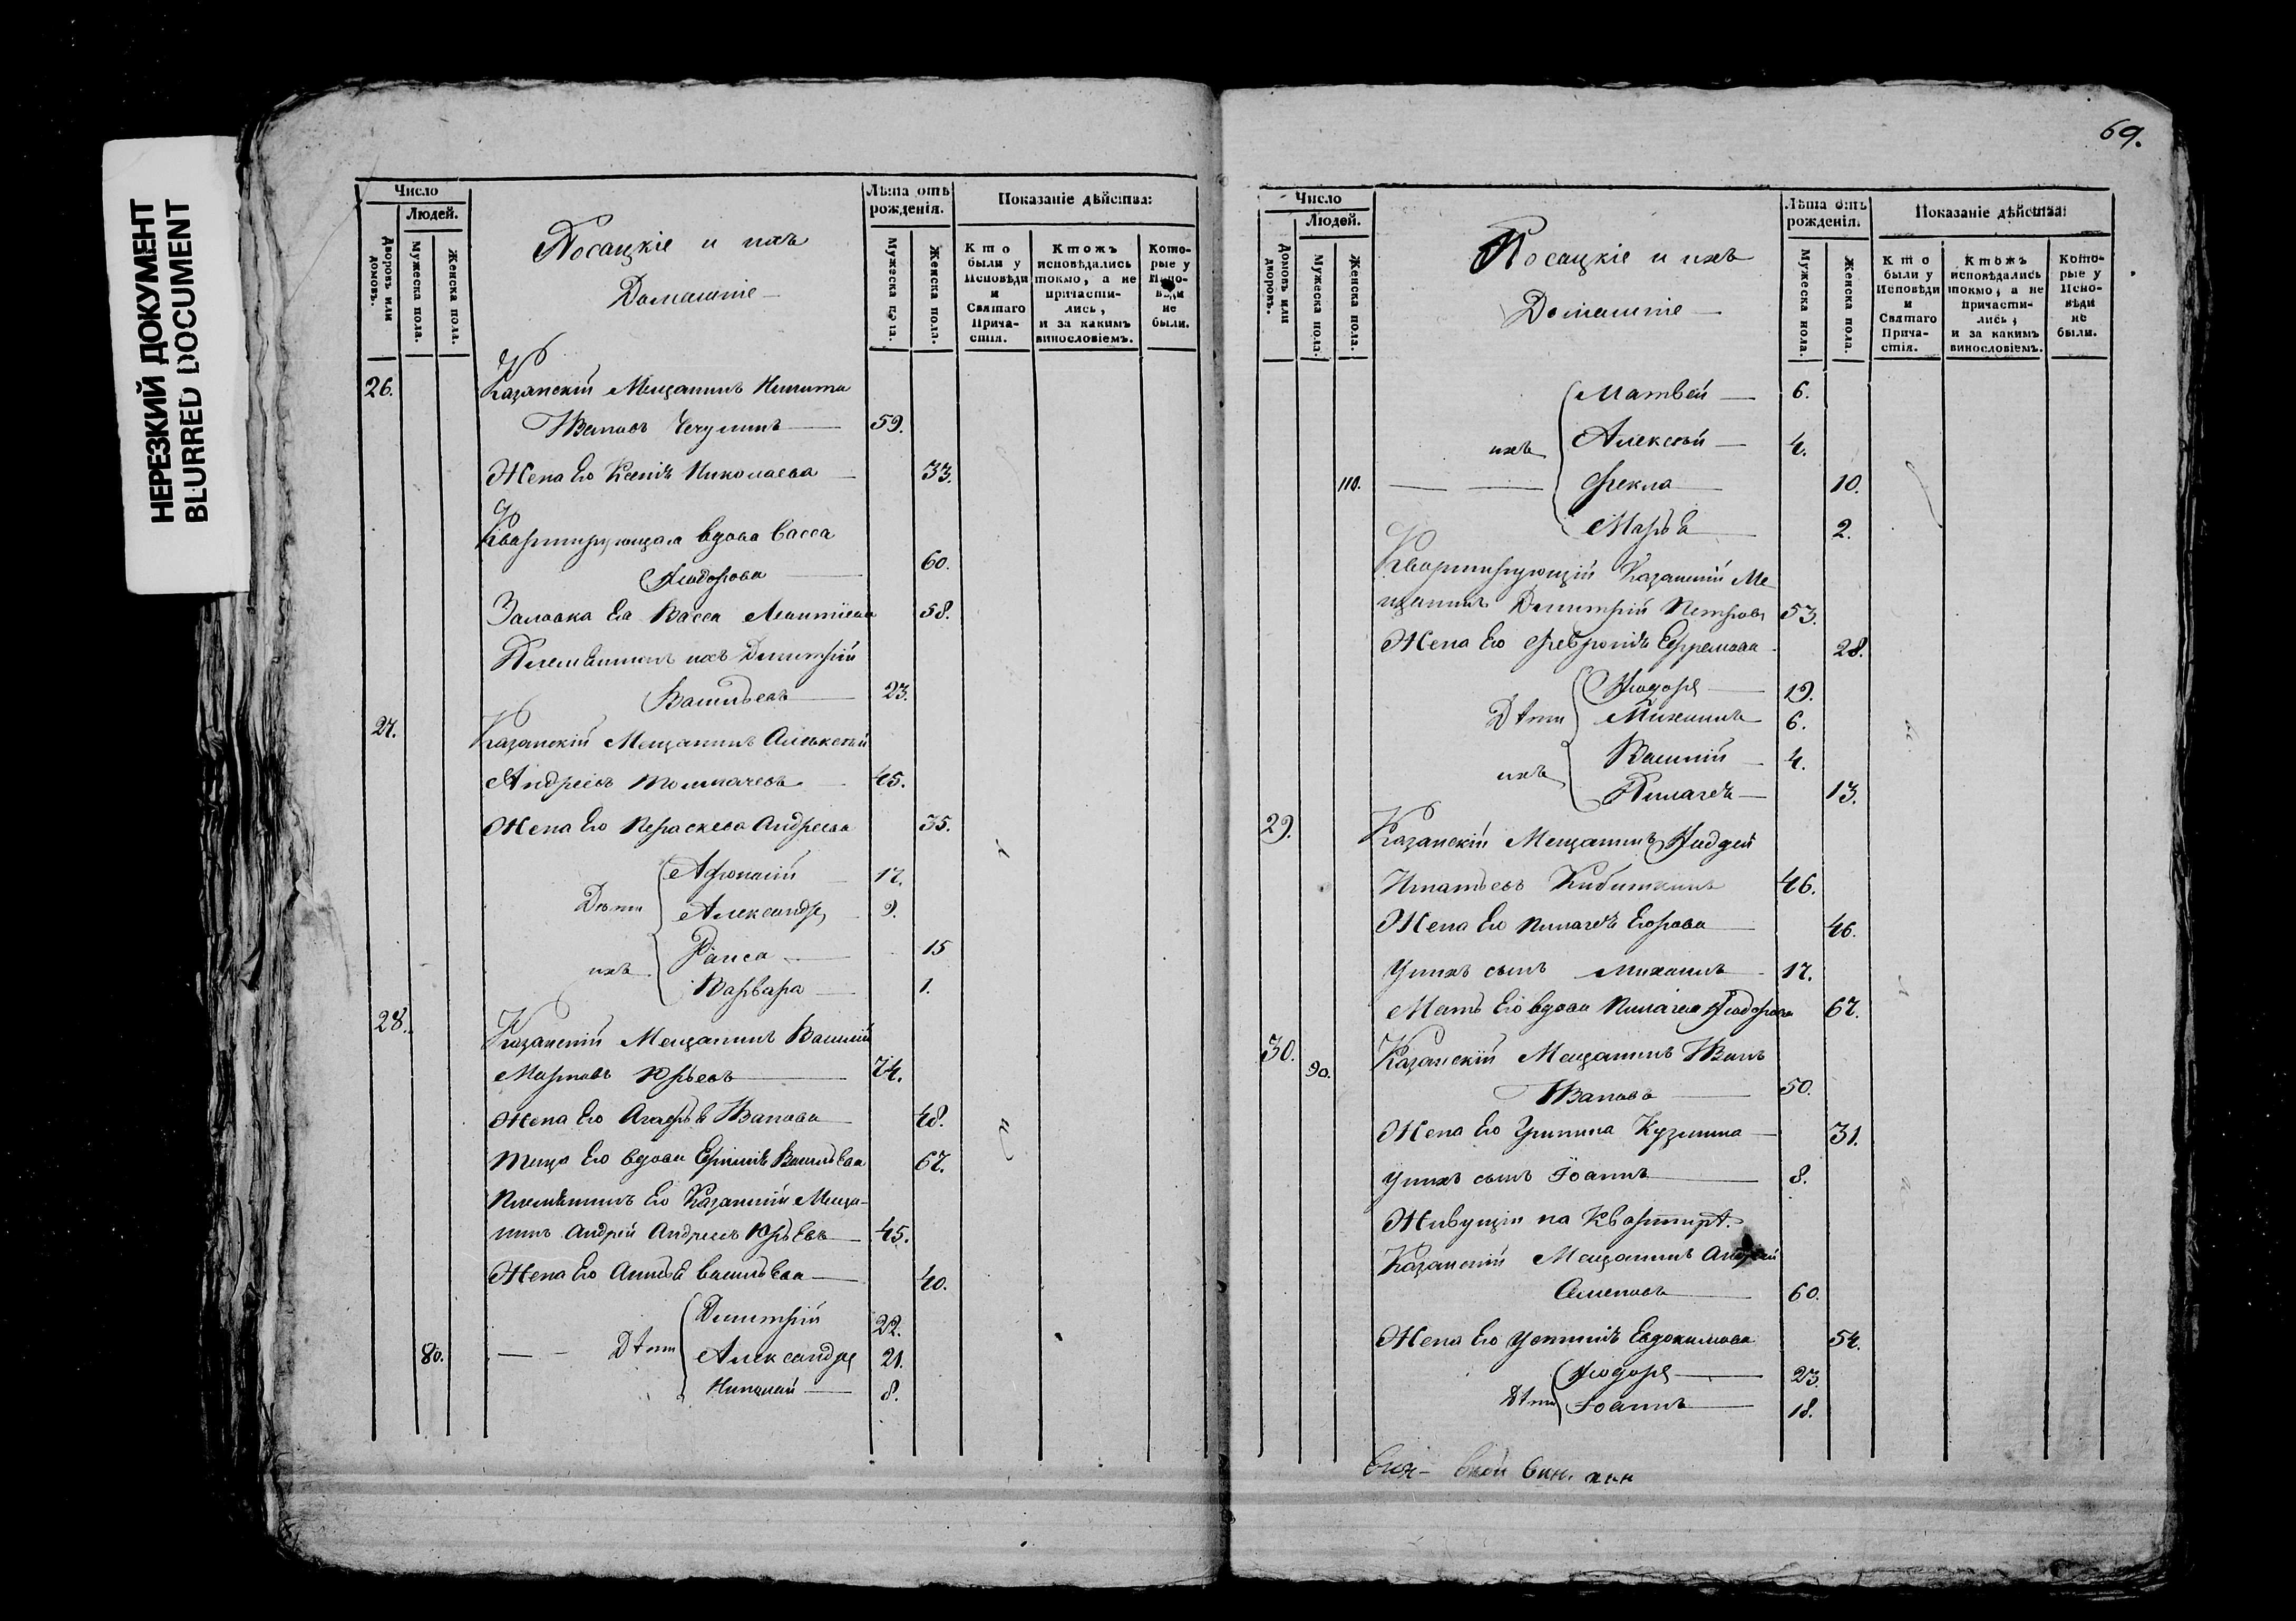 НЕРЕЗКИЙ ДОКУМЕНТ
BLURRED DOCUMENT
Число
Людей.
Дворовъ или домовъ.
Мужеска пола.
Женска пола.
Посацкіе и ихъ
Домашніе
Лѣта отъ рожденія.
Мужеска пола.
Женска пола.
Показаніе дѣйства:
Кто были у Исповѣди и Святаго Причастія.
Ктожъ исповѣдались токмо, а не причастились, и за какимъ винословіемъ.
Которые у Исповѣди не были.
26. Казанскій Мещанинъ Никита
Ивановъ Чекулинъ 59.
Жена Его Ксенія Николаева 33.
Квартирующая вдова Васса
Ѳиодорова 60.
Заловка Ея Васса Леонтіева 58.
Племянникъ ихъ Димитрій
Васильевъ 23.
27. Казанскій Мещанинъ Алексѣй
Андреевъ Толмачевъ 45.
Жена Его Параскева Андреева 35.
Дѣти Афонасій 17.
Александръ 9.
ихъ Раиса 15
Варвара 1.
28. Казанскій Мещанинъ Василій
Марковъ Юрьевъ 74.
Жена Его Агафья Иванова 48.
Теща Его вдова Васильева 67.
Племянникъ Его Казанскій Меща-
нинъ Андрей Андреевъ Юрьевъ 45.
Жена Его Васильева 40.
Димитрій 22.
80. Дѣти Александръ 21.
Николай 8.
69.
Число
Людей.
Домовъ или дворовъ.
Мужеска пола.
Женска пола.
Посацкіе и ихъ
Домашніе
Лѣта отъ рожденія.
Мужеска пола.
Женска пола.
Показаніе дѣйства:
Кто были у Исповѣди и Святаго Причастія.
Ктожъ исповѣдались токмо, а не причастились, и за какимъ винословіемъ.
Которые у Исповѣди не были.
Матвей 6.
ихъ Алексѣй 4.
110. Фекла 10.
Марья 2.
Квартирующій Казанскій Ме-
щанинъ Димитрій Петровъ 53.
Жена Его Февронія Ефремова 28.
Ѳиодоръ 19.
Дѣти Михаилъ 6.
ихъ Василій 4.
Пилагея 13.
29. Казанскій Мещанинъ Ѳаддей
Игнатьевъ Кибиткинъ 46.
Жена Его Пилагея Егорова 46.
У нихъ сынъ Михаилъ 17.
Мать Его вдова Пилагея Ѳиодорова 67.
30. Казанскій Мещанинъ Иванъ
90. Ивановъ 50.
Жена Его Улинина Кузмина 31.
У нихъ сынъ Іоаннъ 8.
Живущіи на Квартирѣ.
Казанскій Мещанинъ Андрей
Семеновъ 60.
Жена Его Устинія Евдокимова 54.
Ѳиодоръ 23.
Дѣти Іоаннъ 18.